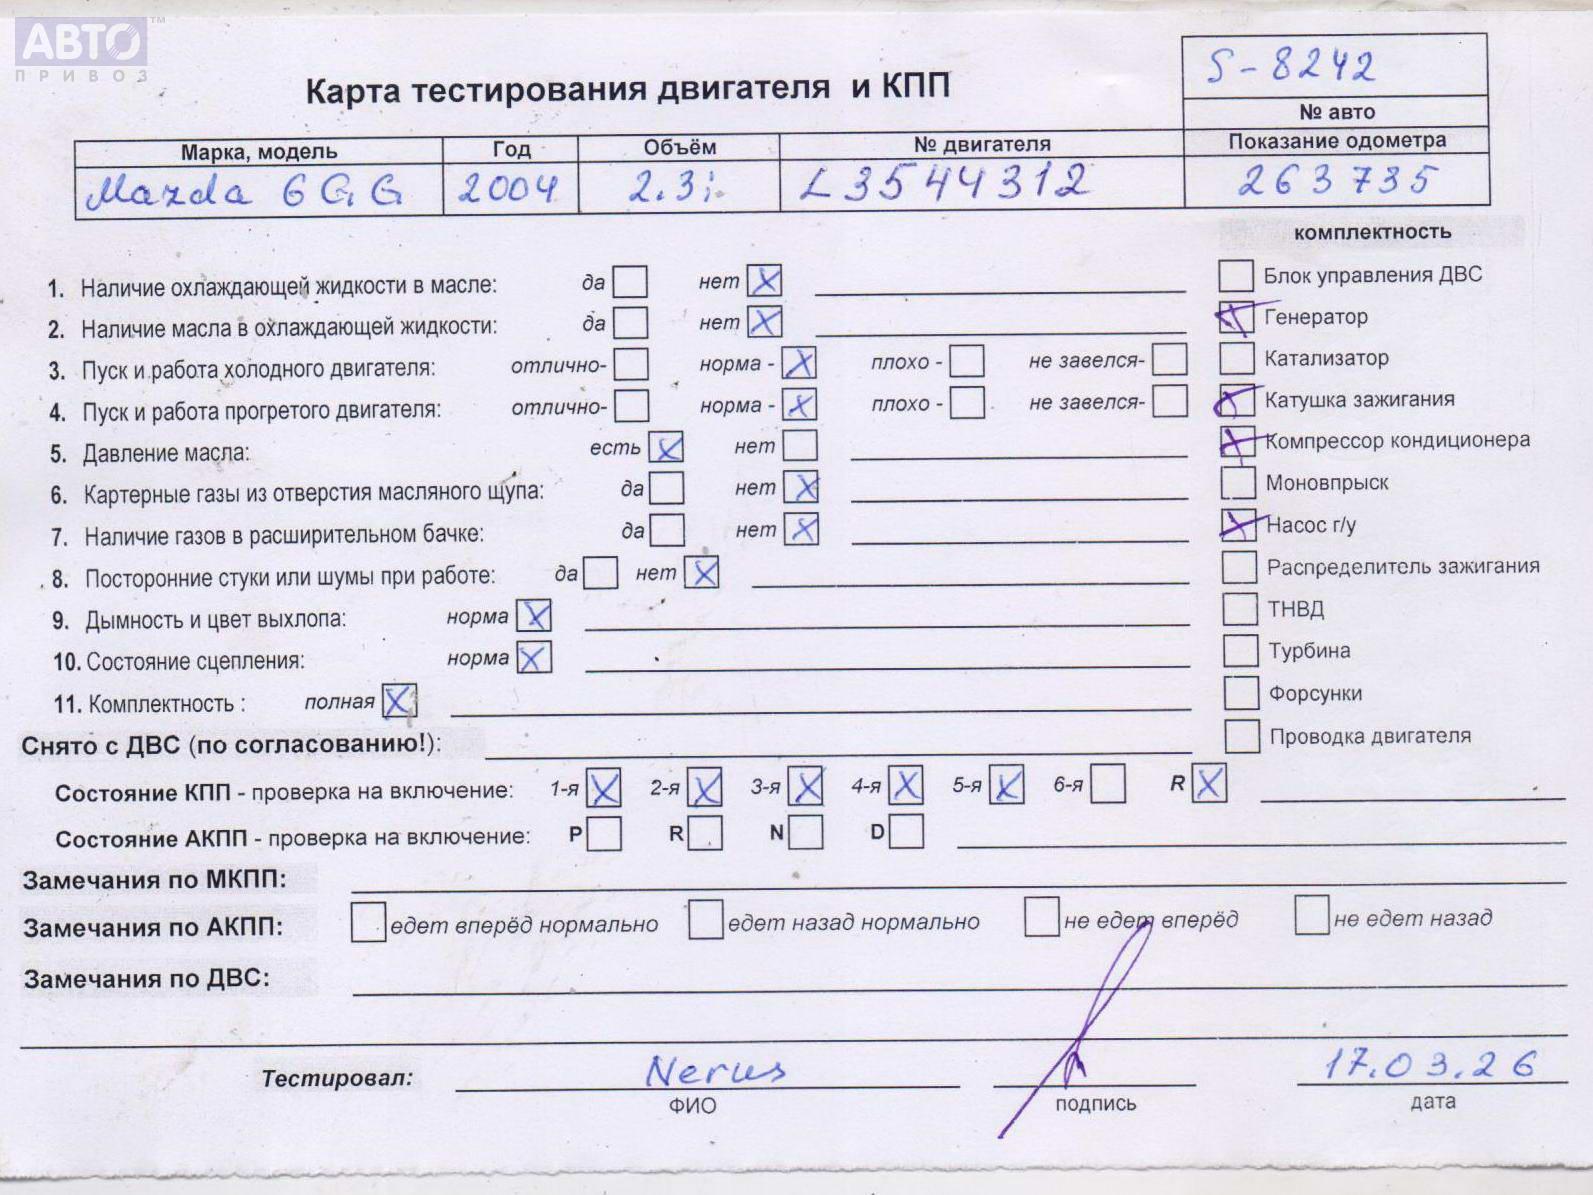 АВТО™
ПРИВОЗ
S-8242
Карта тестирования двигателя и КПП
№ авто
Марка, модель Год Объём № двигателя Показание одометра
Mazda 6 GG 2004 2.3i L3544312 263735
комплектность
1. Наличие охлаждающей жидкости в масле: да нет X
Блок управления ДВС
2. Наличие масла в охлаждающей жидкости: да нет X
X Генератор
3. Пуск и работа холодного двигателя: отлично- норма - X плохо - не завелся-
Катализатор
4. Пуск и работа прогретого двигателя: отлично- норма - X плохо - не завелся-
X Катушка зажигания
5. Давление масла: есть X нет
X Компрессор кондиционера
6. Картерные газы из отверстия масляного щупа: да нет X
Моновпрыск
7. Наличие газов в расширительном бачке: да нет X
X Насос г/у
8. Посторонние стуки или шумы при работе: да нет X
Распределитель зажигания
9. Дымность и цвет выхлопа: норма X
ТНВД
10. Состояние сцепления: норма X
Турбина
11. Комплектность : полная X
Форсунки
Снято с ДВС (по согласованию!):
Проводка двигателя
Состояние КПП - проверка на включение: 1-я X 2-я X 3-я X 4-я X 5-я X 6-я R X
Состояние АКПП - проверка на включение: P R N D
Замечания по МКПП:
Замечания по АКПП: едет вперёд нормально едет назад нормально не едет вперёд не едет назад
Замечания по ДВС:
Тестировал: Nerus 17.03.26
ФИО подпись дата